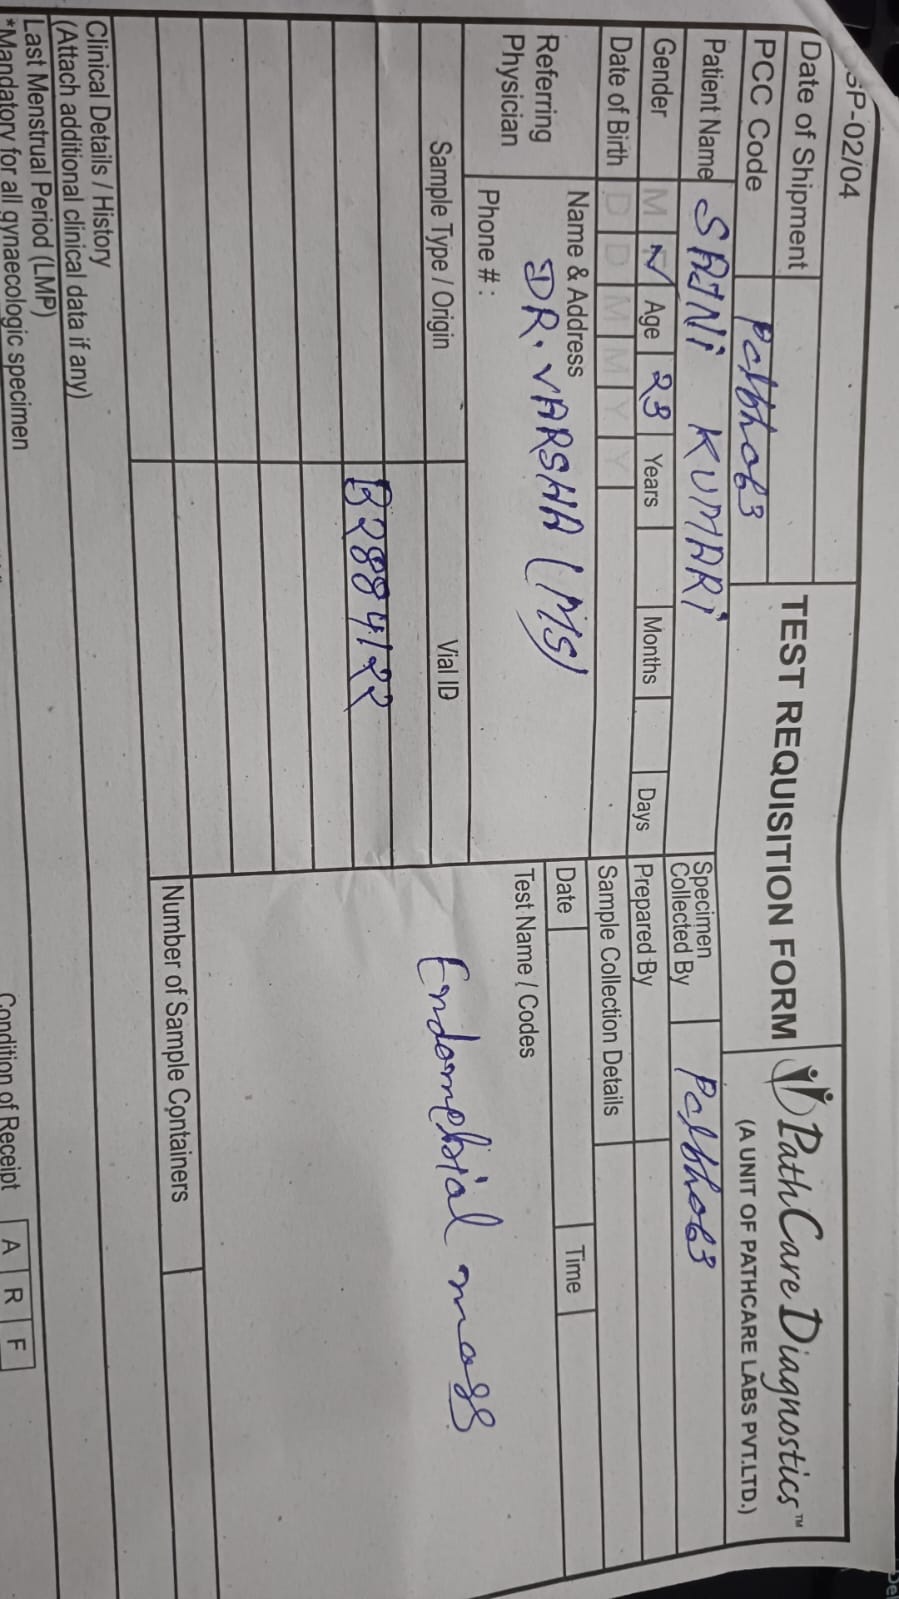 SP-02/04
Date of Shipment
PCC Code
TEST REQUISITION FORM
PathCare Diagnostics™
(A UNIT OF PATHCARE LABS PVT.LTD.)
Patient Name KUMARI
Specimen Collected By
Gender M Age 23 Years Months Days
Prepared By
Date of Birth D D M M Y Y
Sample Collection Details
Date Time
Referring Physician
Name & Address
DR. VARSHA (MS)
Phone # :
Test Name / Codes
Endometrial mass
Sample Type / Origin Vial ID
B2884/22
Number of Sample Containers
Clinical Details / History
(Attach additional clinical data if any)
Last Menstrual Period (LMP)
*Mandatory for all gynaecologic specimen
Condition of Receipt A R F